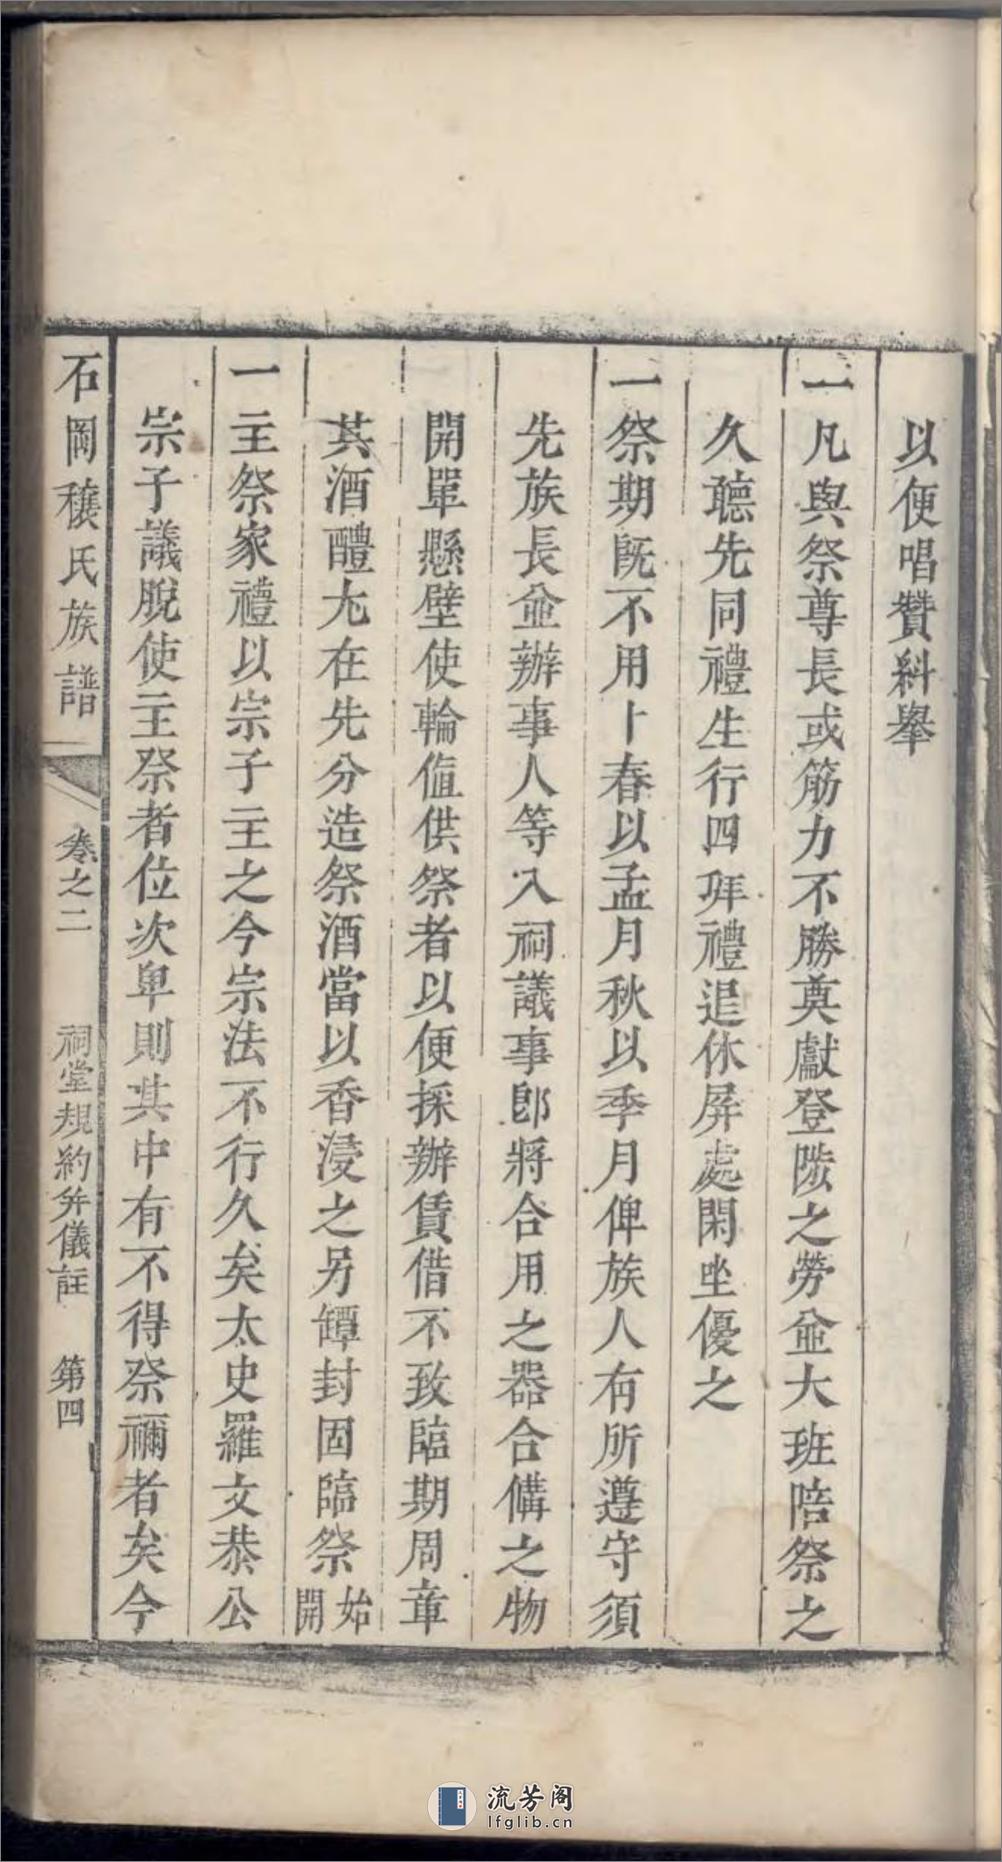 以便唱贊糾舉
一凡與祭尊長或筋力不勝奠獻登陟之勞並大班陪祭之
久聽先同禮生行四拜禮退休屏處閑坐優之
一祭期既不用卜春以孟月秋以季月俾族人有所遵守須
先族長並辦事人等入祠議事即將合用之器合備之物
開單懸壁使輪值供祭者以便採辦賃借不致臨期周章
其酒醴尤在先分造祭酒當以香浸之另罈封固臨祭始開
一主祭家禮以宗子主之今宗法不行久矣太史羅文恭公
宗子議脫使主祭者位次卑則其中有不得祭禰者矣今
石岡穰氏族譜 卷之二 祠堂規約并儀註 第四
流芳阁
lfglib.cn